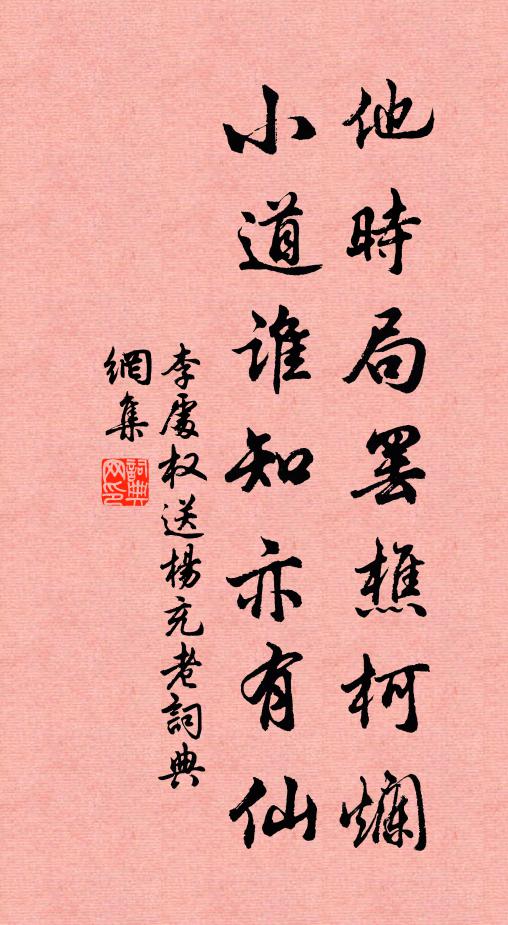 他時局罢樵柯爛
小道谁知亦有仙
李處权送楊充老詞典
網集
詞典网印